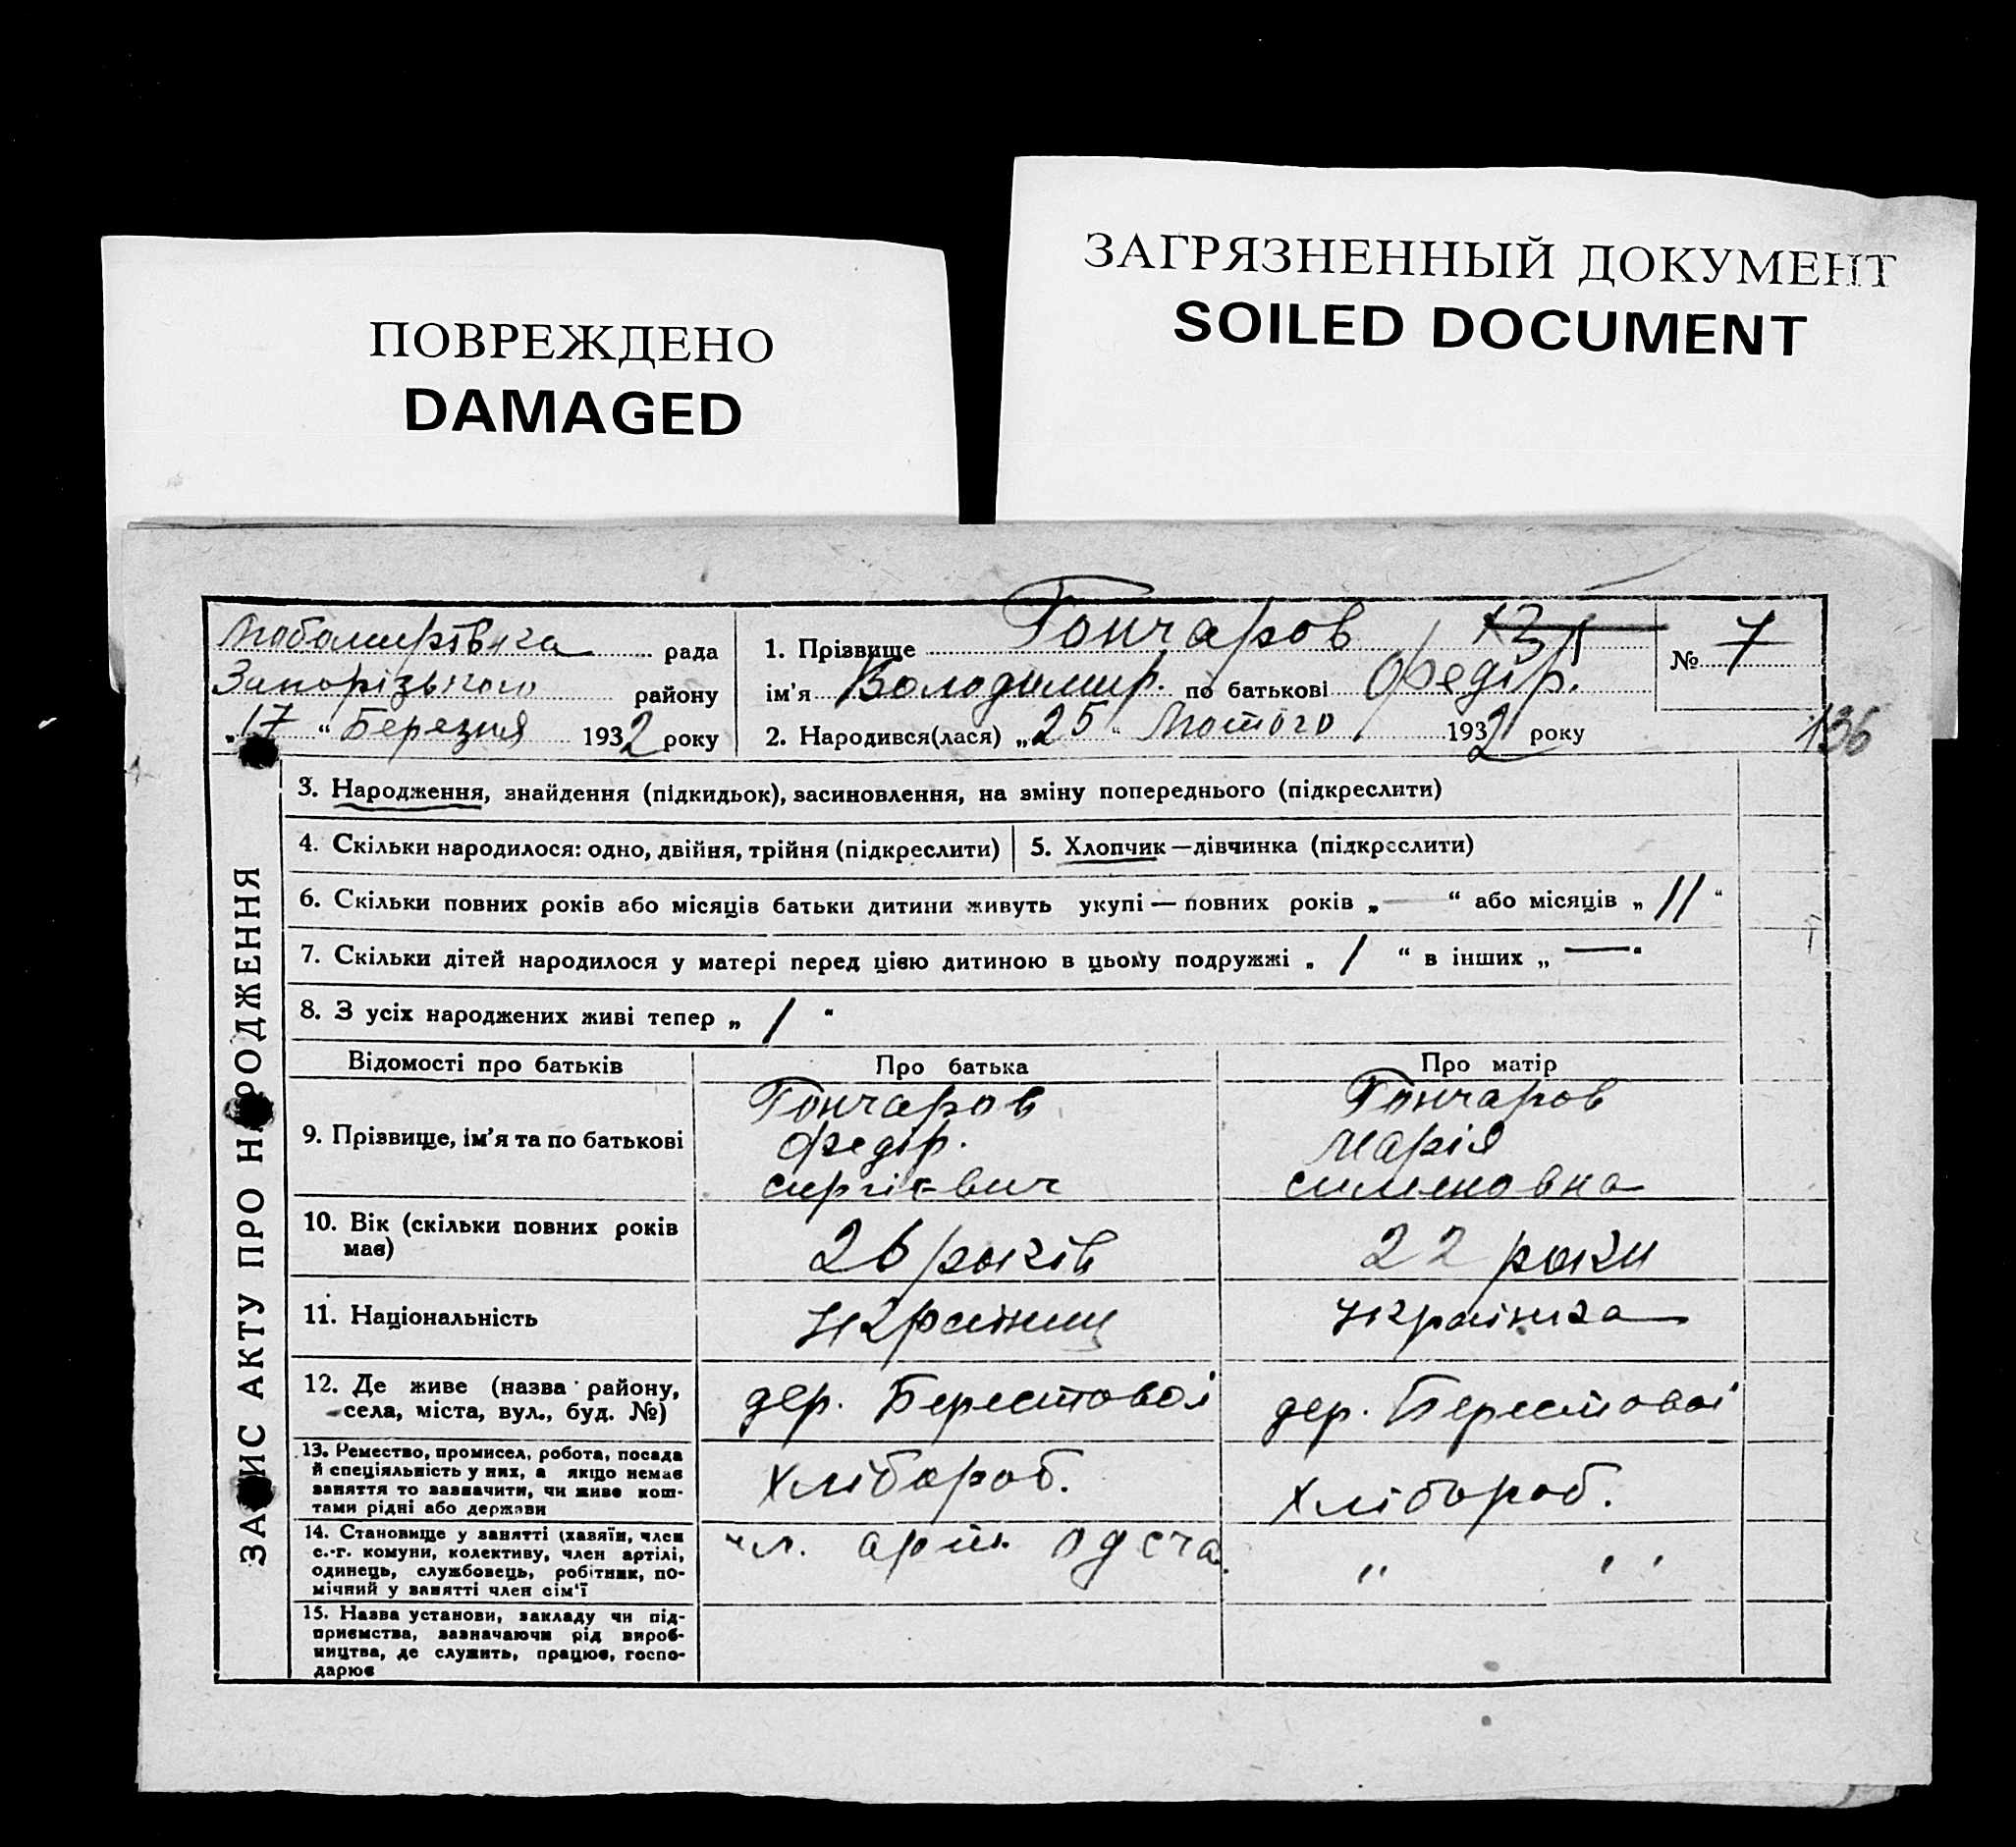 ПОВРЕЖДЕНО
DAMAGED
ЗАГРЯЗНЕННЫЙ ДОКУМЕНТ
SOILED DOCUMENT
рада
Запорізького району
„17“ Березня 1932 року
1. Прізвище Гончаров
ім'я Володимир. по батькові Федір.
2. Народився(лася) „25“ Лютого 1932 року
№ 7
136
ЗАПИС АКТУ ПРО НАРОДЖЕННЯ
3. Народження, знайдення (підкидьок), засиновлення, на зміну попереднього (підкреслити)
4. Скільки народилося: одно, двійня, трійня (підкреслити)
5. Хлопчик—дівчинка (підкреслити)
6. Скільки повних років або місяців батьки дитини живуть укупі — повних років „—“ або місяців „11“
7. Скільки дітей народилося у матері перед цією дитиною в цьому подружжі „1“ в інших „—“
8. З усіх народжених живі тепер „1“
Відомості про батьків
Про батька
Про матір
9. Прізвище, ім'я та по батькові
Гончаров
Федір.
сиргієвич
Гончаров
Марія
симиновна
10. Вік (скільки повних років
має)
26 років
22 роки
11. Національність
Українец
Українка
12. Де живе (назва району,
села, міста, вул., буд. №)
дер. Берестовоі
дер. Берестовоі
13. Ремество, промисел, робота, посада
й спеціяльність у них, а якщо немає
заняття то зазначити, чи живе кош-
тами рідні або держави
Хлібороб.
Хлібороб.
14. Становище у занятті (хазяїн, член
с.-г. комуни, колективу, член артілі,
одинець, службовець, робітник, по-
мічний у занятті член сім'ї
чл. арт.
" "
15. Назва установи, закладу чи під-
приємства, зазначаючи рід вироб-
ництва, де служить, працює, госпо-
дарює